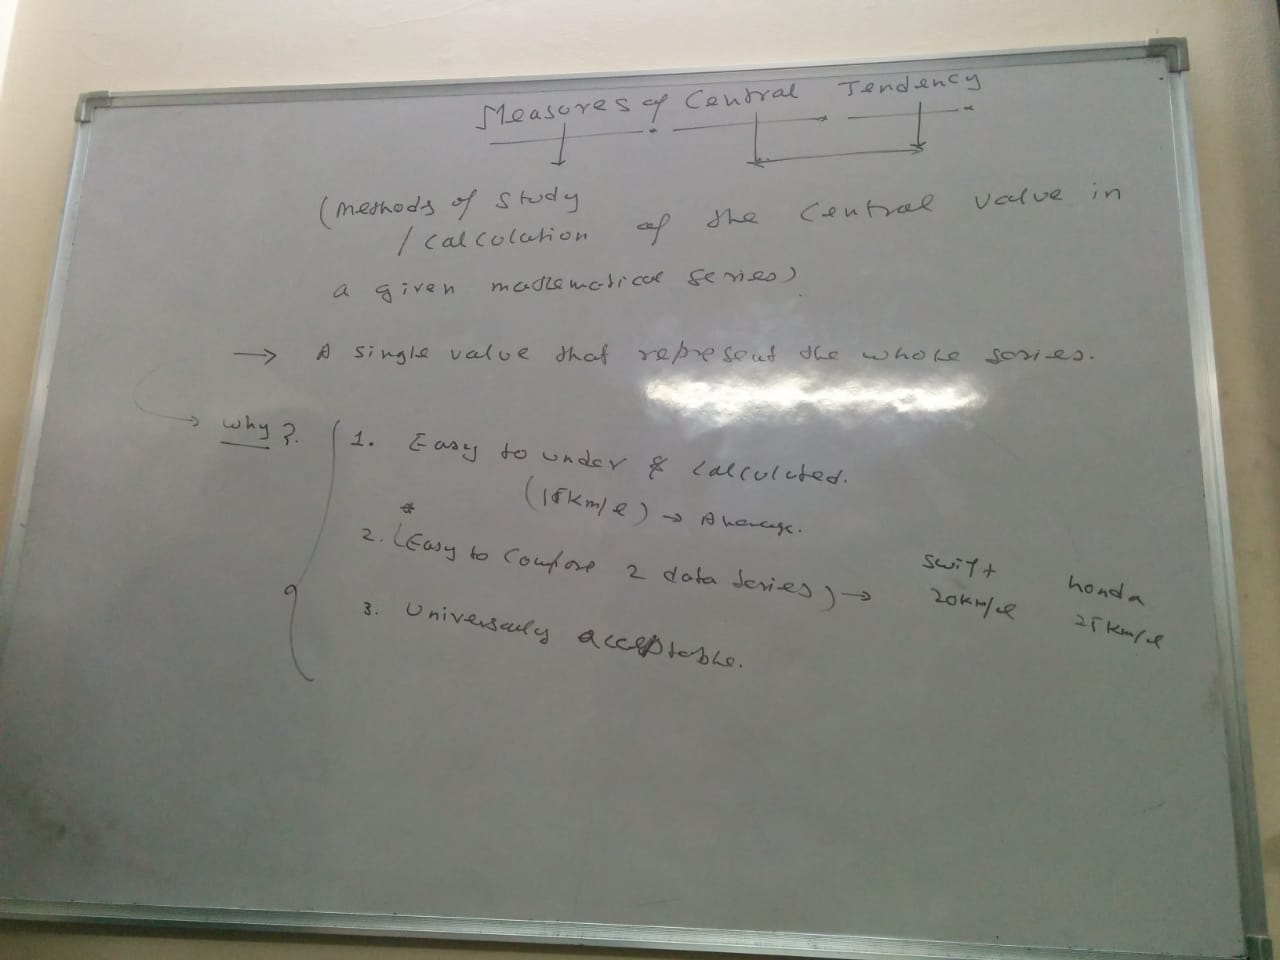 Measures of Central Tendency
(methods of study
/ calculation of the central value in
a given mathematical series)
→ A single value that represent the whole series.
→ why?
1. Easy to under & calculated.
(15km/l) → Average.
*
2. (Easy to Compare 2 data series) → swift honda
20km/l 25km/l
3. Universally acceptable.